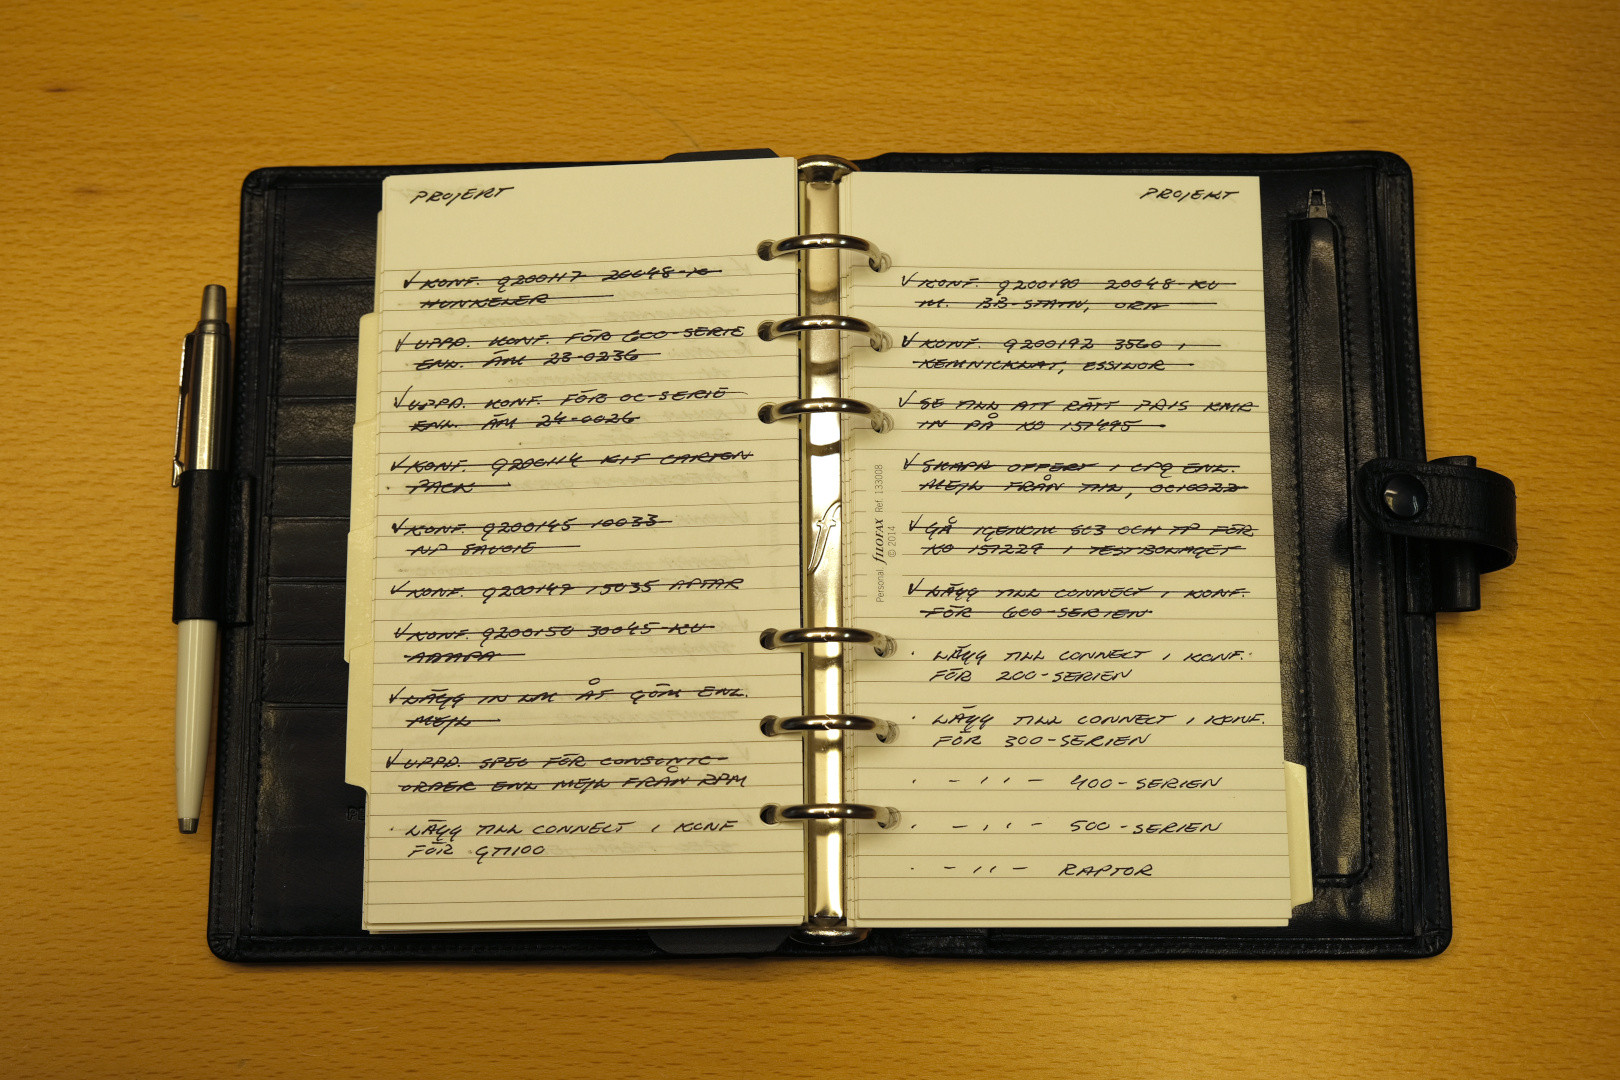 PROJEKT
✓ KONF. Q200117 20048-10
HUNKELER
✓ UPPD. KONF. FÖR 600-SERIE
ENL. ÄM 23-0236
✓ UPPD. KONF. FÖR OC-SERIE
ENL. ÄM 24-0026
✓ KONF. Q200114 KIT CARTON
PACK
✓ KONF. Q200145 10033
NP SAVOIE
✓ KONF. Q200147 15035 APTAR
✓ KONF. Q200150 30045-KU
✓ LÄGG IN LM ÅT GÖM ENL.
MEJL
✓ UPPD. SPEC FÖR CONSONIC-
ORDER ENL MEJL FRÅN RPM
· LÄGG TILL CONNECT I KONF
FÖR GT1100
PROJEKT
✓ KONF. Q200190 20048-KU
M. BB-STATIV, ORH
✓ KONF. Q200192 3560 I
KEMNICKLAT, ESSILOR
✓ SE TILL ATT RÄTT PRIS KMR
IN PÅ KO 157495
✓ SKAPA OFFERT I CPQ ENL.
MEJL FRÅN TIL, OC10022
✓ GÅ IGENOM SC3 OCH TP FÖR
KO 157229 I TESTBOLAGET
✓ LÄGG TILL CONNECT I KONF.
FÖR 600-SERIEN
· LÄGG TILL CONNECT I KONF.
FÖR 200-SERIEN
· LÄGG TILL CONNECT I KONF.
FÖR 300-SERIEN
· - ,, - 400-SERIEN
· - ,, - 500-SERIEN
· - ,, - RAPTOR
Personal filofax Ref. 133008
© 2014